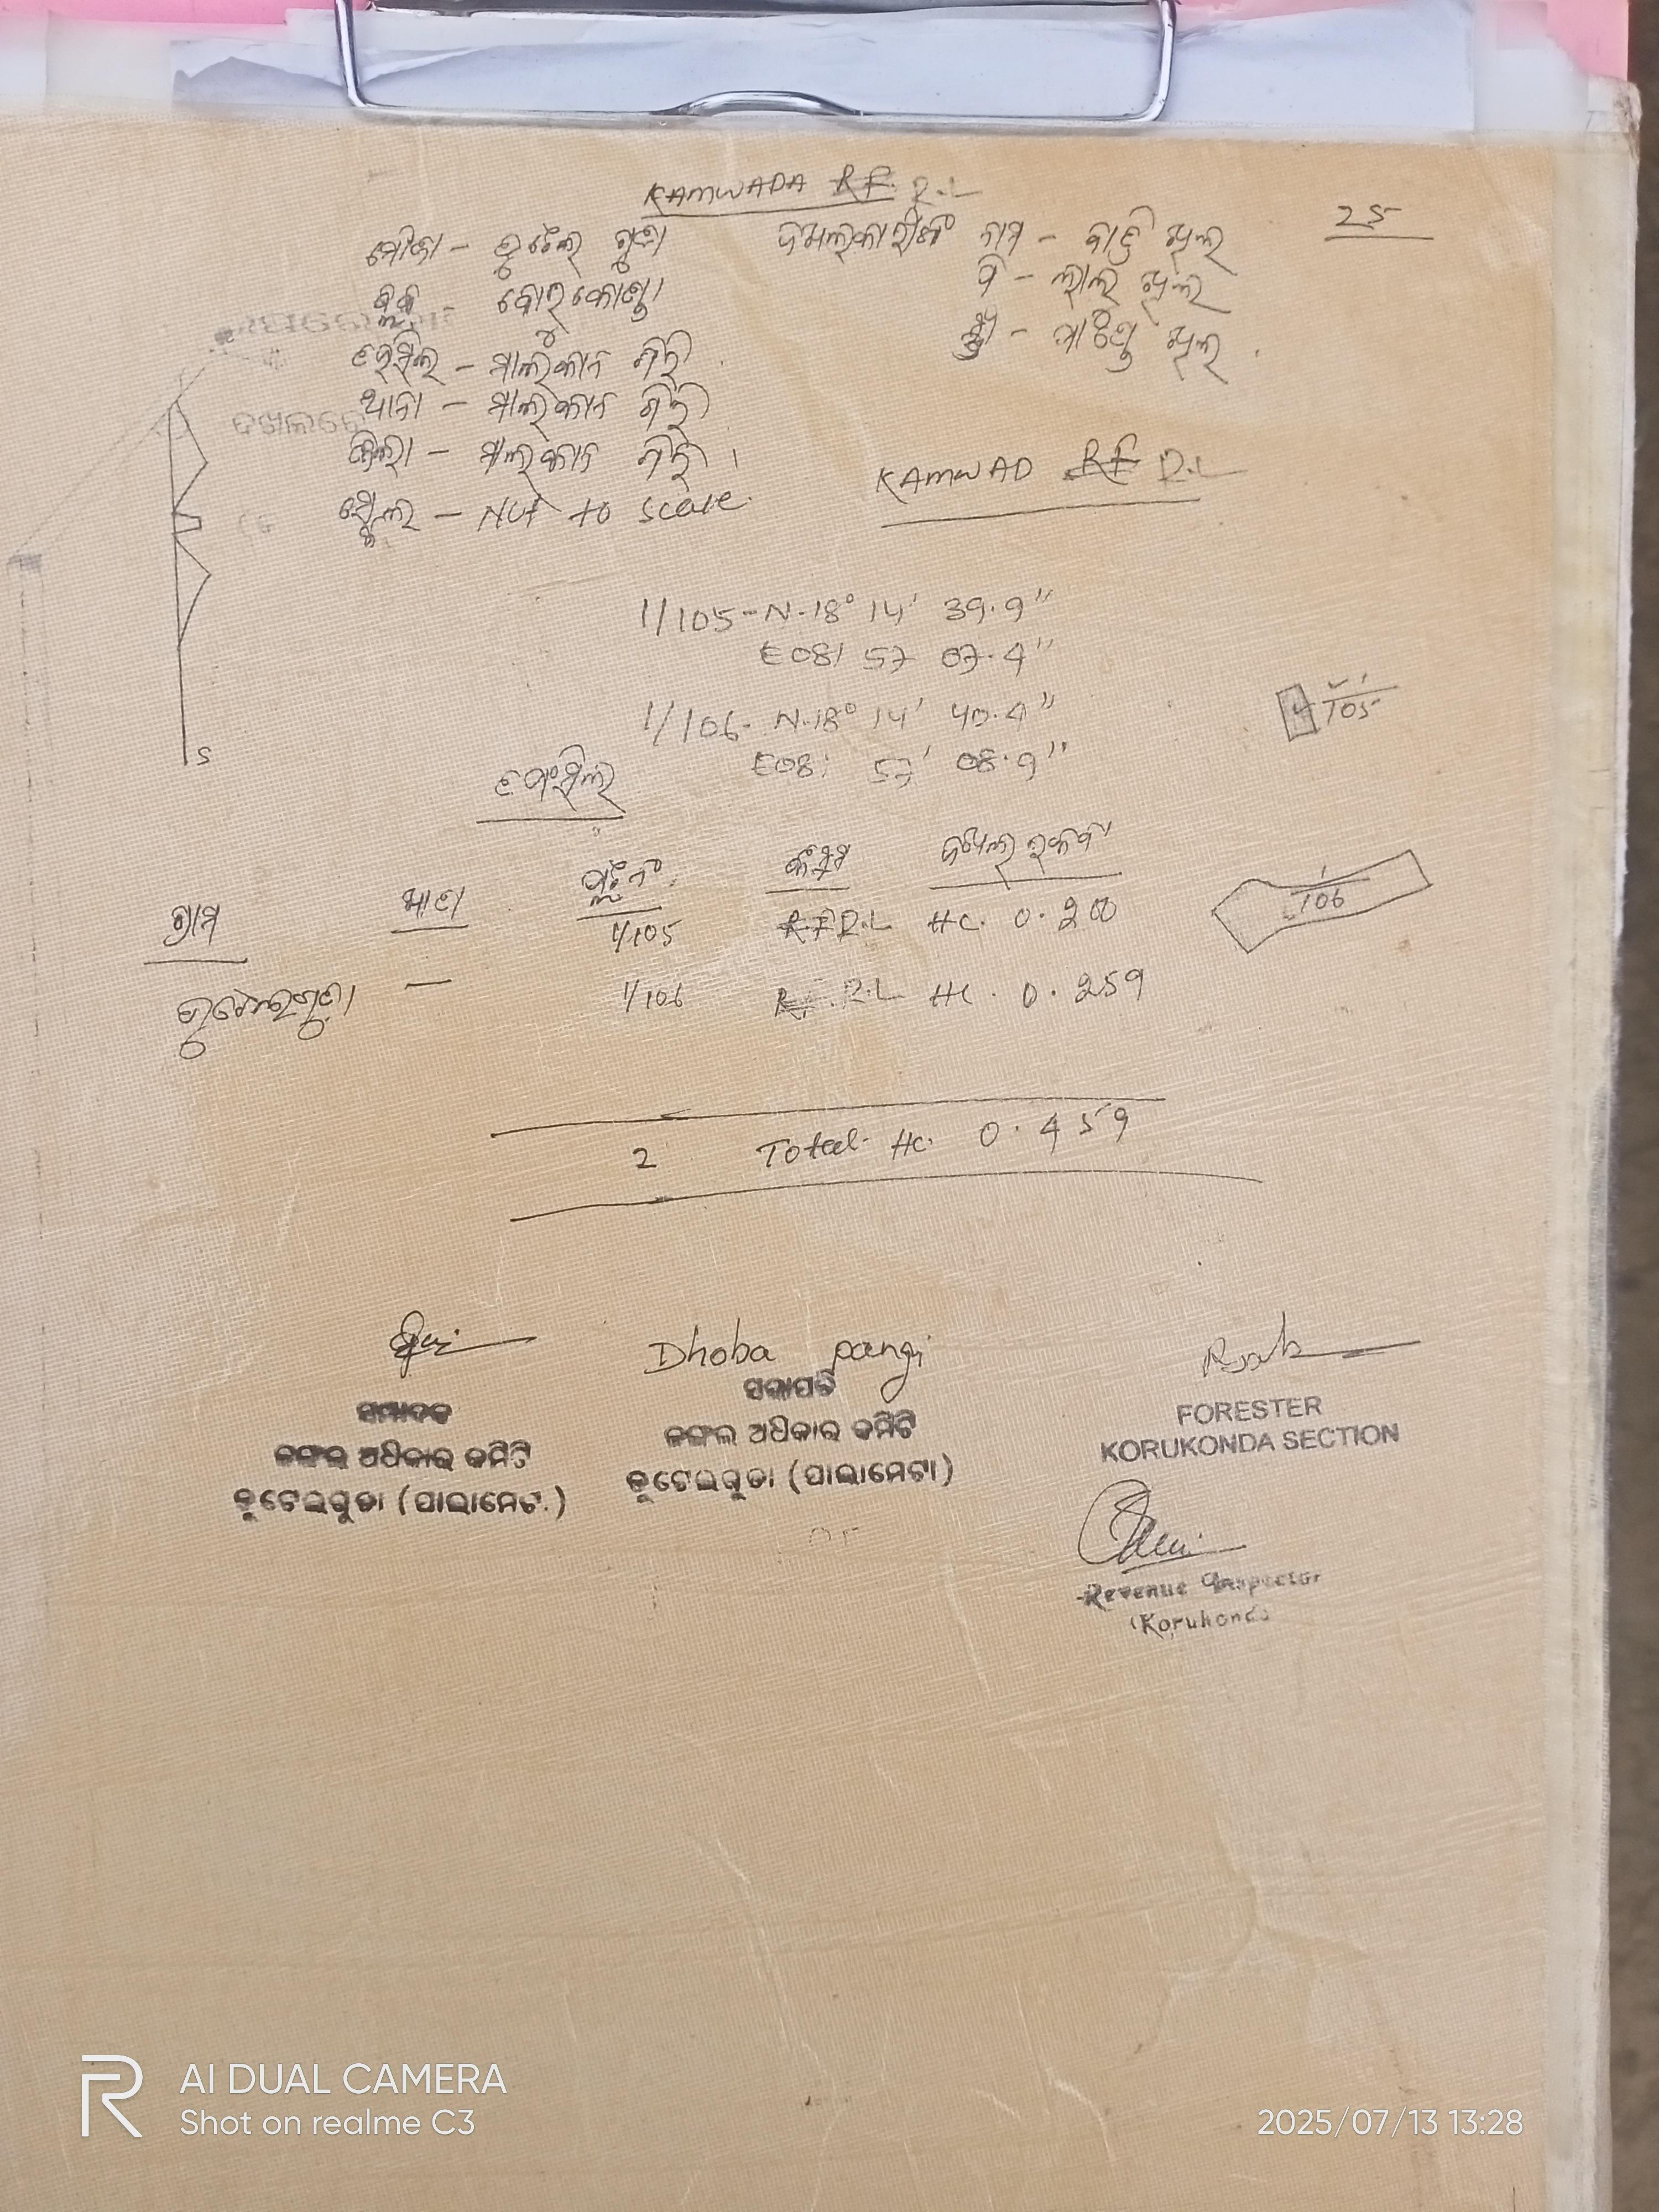 KAMWADA R.F. R.L
25
ମୌଜା - କୁଟେଲ ଗୁଡା
ଦଖଲକାରୀଙ୍କ ନାମ -
ବ୍ଲକ - କୋରୁକୋଣ୍ଡା
ତହସିଲ - ମାଲକାନ ଗିରି
ଥାନା - ମାଲକାନ ଗିରି
ଜିଲା - ମାଲକାନ ଗିରି
ସ୍କେଲ - Not to scale
ଦଖଲରେ
KAMWAD RF R.L
1/105-N-18° 14' 39.9"
E081 57 07.4"
1/106- N-18° 14' 40.4"
E081 57' 08.9"
1/105
S
ତଫସିଲ
ଗ୍ରାମ ଖାତା ପ୍ଲଟ ନଂ କିସମ ଦଖଲ ରକବା
1/105 R.F R.L HC. 0.200
1/106
କୁଟେଲଗୁଡା — 1/106 R.F. R.L HC. 0.259
2 Total HC. 0.459
Dhoba pangi
ସମ୍ପାଦକ
ଜଙ୍ଗଲ ଅଧିକାର କମିଟି
କୁଟେଇଗୁଡା (ପାଲାମେଟା)
ସଭାପତି
ଜଙ୍ଗଲ ଅଧିକାର କମିଟି
କୁଟେଇଗୁଡା (ପାଲାମେଟା)
FORESTER
KORUKONDA SECTION
Revenue Inspector
(Korukonda
AI DUAL CAMERA
Shot on realme C3
2025/07/13 13:28